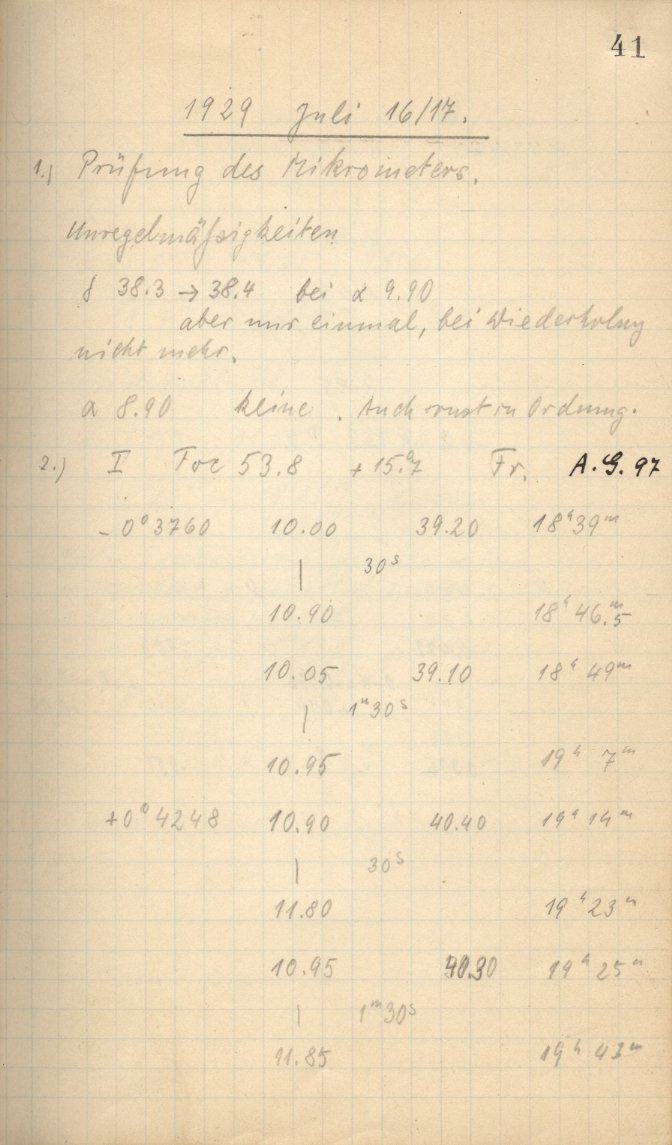 41
1929 Juli 16/17.
1.) Prüfung des Mikrometers.
Unregelmäßigkeiten
δ 38.3 → 38.4 bei α 9.90
aber nur einmal, bei Wiederholung
nicht mehr.
α 8.90 keine. Auch sonst in Ordnung.
2.) I Foc 53.8 +15.°7 Fr. A.G. 97
- 0°3760 10.00 39.20 18h 39m
| 30s
10.90 18h 46.m5
10.05 39.10 18h 49m
| 1m 30s
10.95 19h 7m
+0°4248 10.90 40.40 19h 14m
| 30s
11.80 19h 23m
10.95 40.30 19h 25m
| 1m 30s
11.85 19h 43m